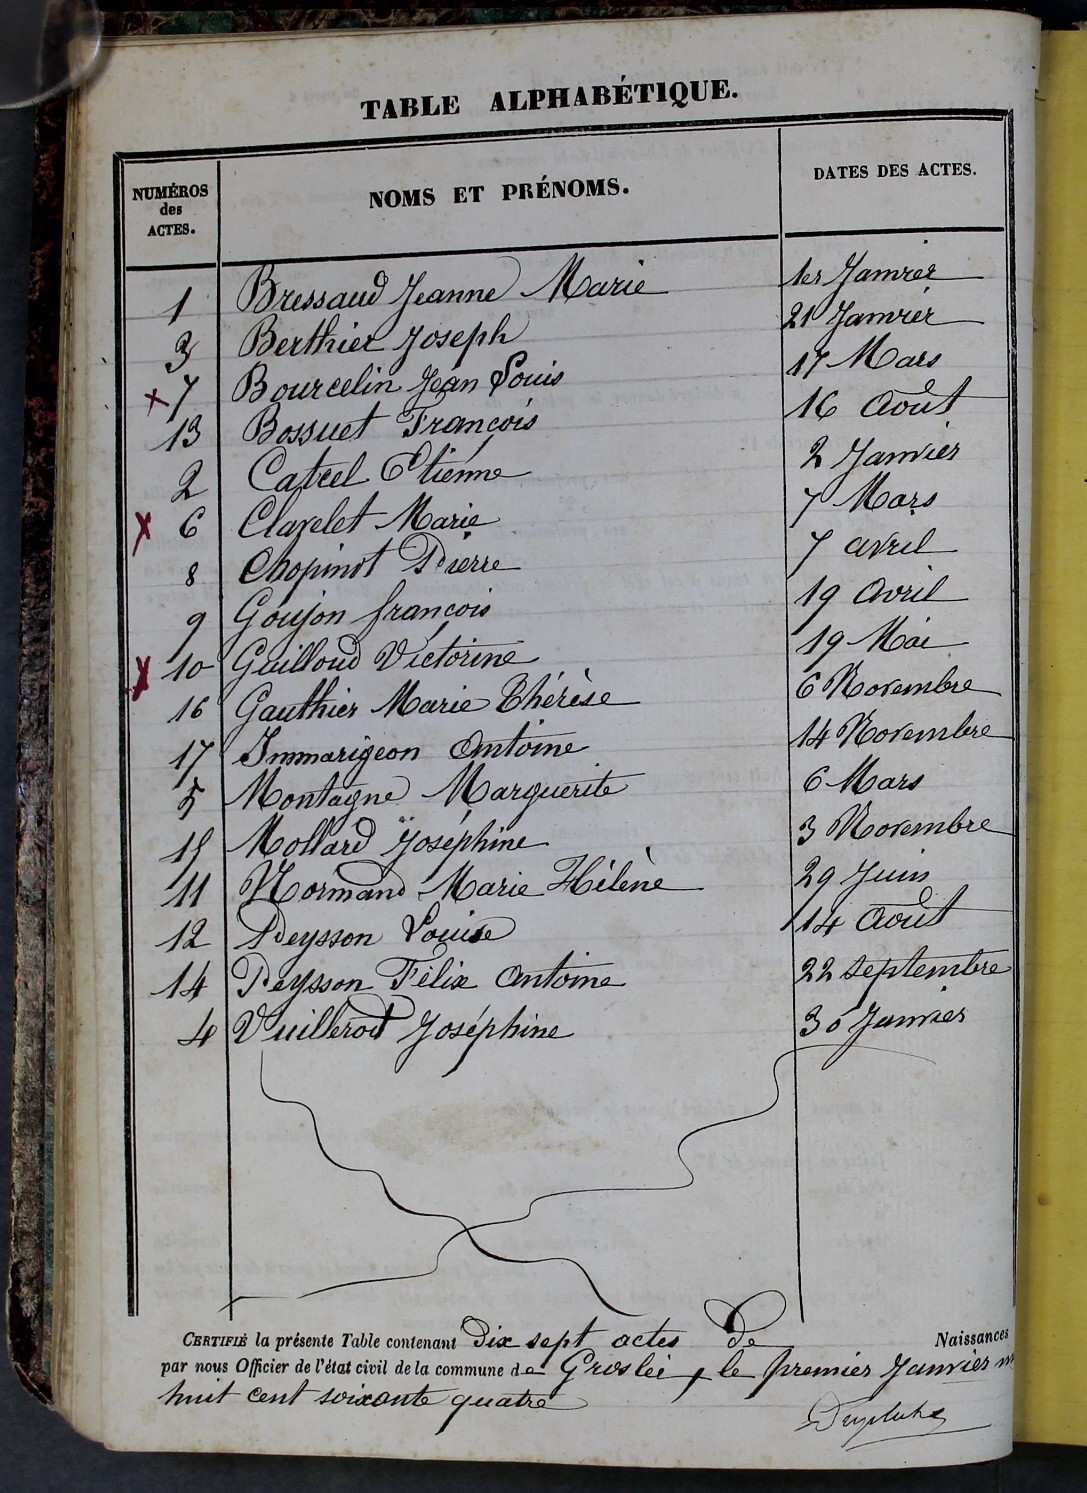 TABLE ALPHABÉTIQUE.
NUMÉROS des ACTES. NOMS ET PRÉNOMS. DATES DES ACTES.
1 Bressaud Jeanne Marie 1er Janvier
3 Berthier Joseph 21 Janvier
x 7 Bourcelin Jean Louis 17 Mars
13 Bossuet François 16 Août
2 Catrel Etienne 2 Janvier
x 6 Clavelet Marie 7 Mars
8 Chopinot Pierre 7 avril
9 Goujon françois 19 Avril
x 10 Guilloud Victorine 19 Mai
16 Gauthier Marie Thérèse 6 Novembre
17 Immarigeon Antoine 14 Novembre
5 Montagne Marguerite 6 Mars
15 Mollard Joséphine 3 Novembre
11 Normand Marie Hélène 29 Juin
12 Peysson Louise 14 Août
14 Peysson Félix Antoine 22 septembre
4 Vuillerod Joséphine 30 Janvier
CERTIFIÉ la présente Table contenant Dix sept actes De Naissances
par nous Officier de l'état civil de la commune de Groslei, le premier Janvier m
huit cent soixante quatre